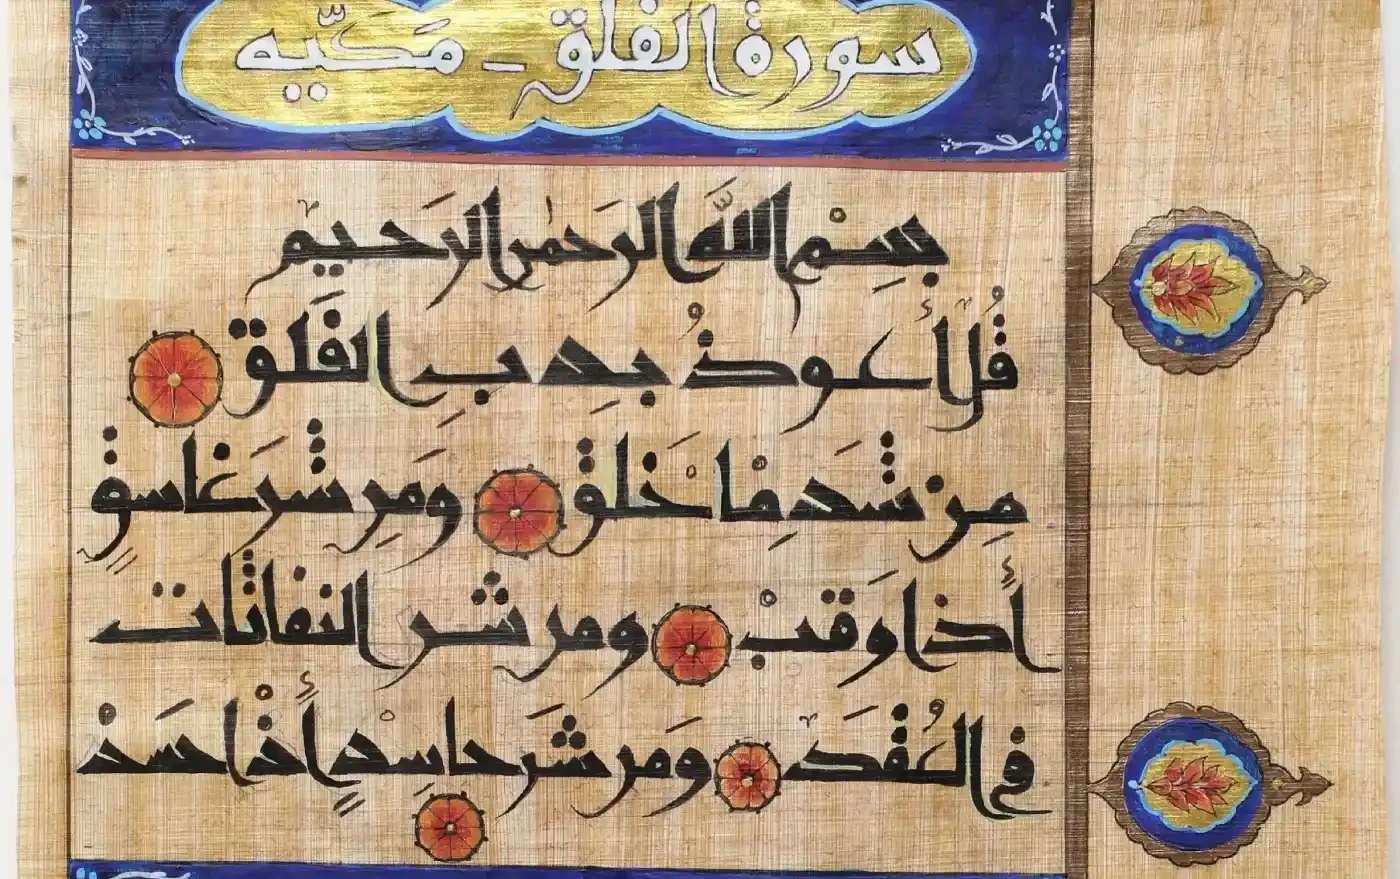 سورة الفلق - مَكيّه
بِسْمِ اللَّه الرَحمٰن الرَحيم
قُل أَعوذُ بِرَبِ الفَلَق
مِنْ شَر مِا خَلَق وَمِن شَر غَاسِقٍ
أَذا وَقبْ ومن شر النفاثات
في العُقَد وَمَن شَر حاسِدٍ أَذْا حَسَدْ